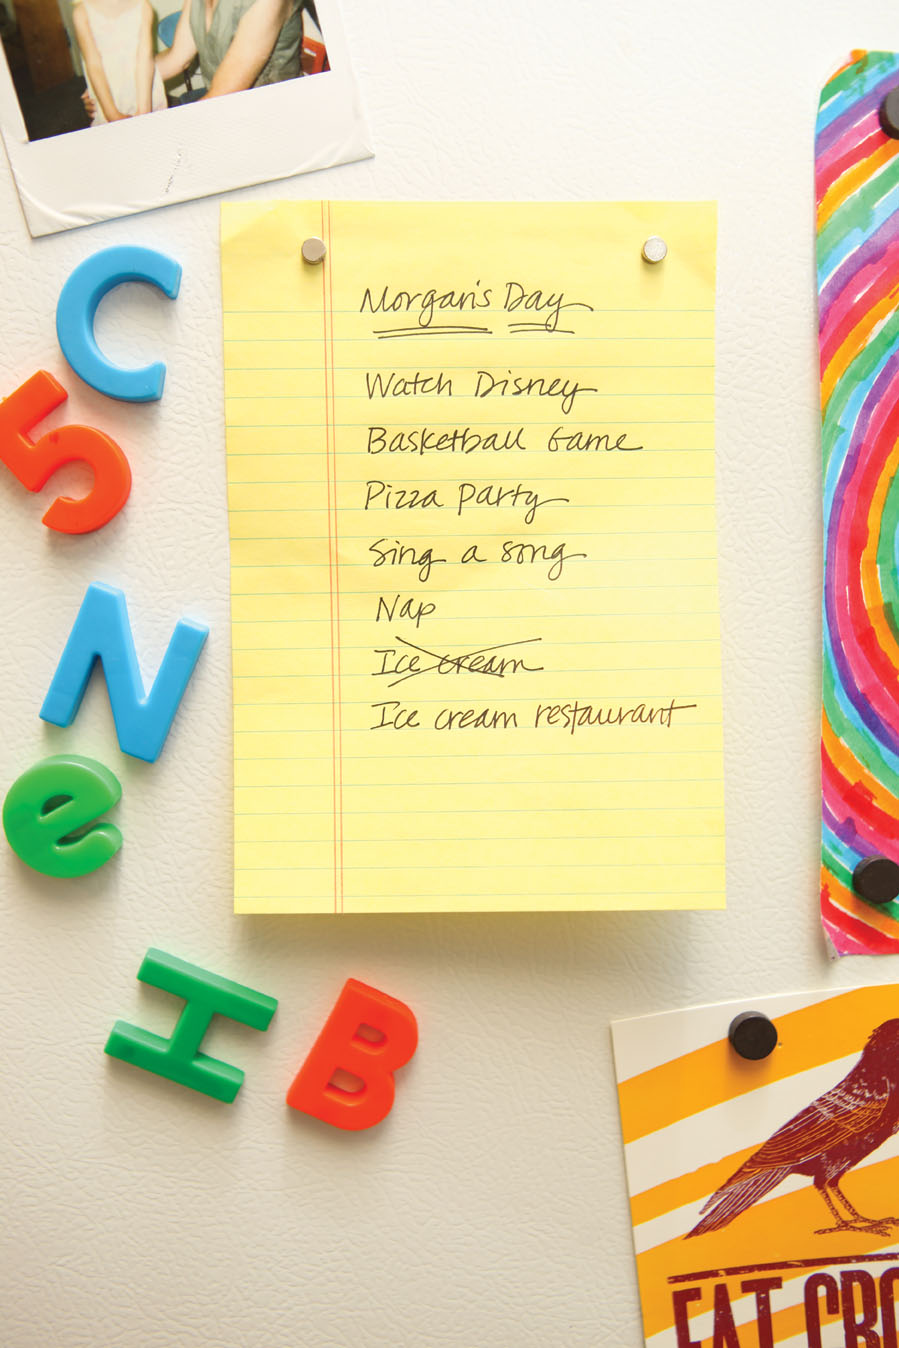 Morgan's Day
Watch Disney
Basketball Game
Pizza party
Sing a song
Nap
Ice cream
Ice cream restaurant
C
5
N
e
H
B
EAT CRO